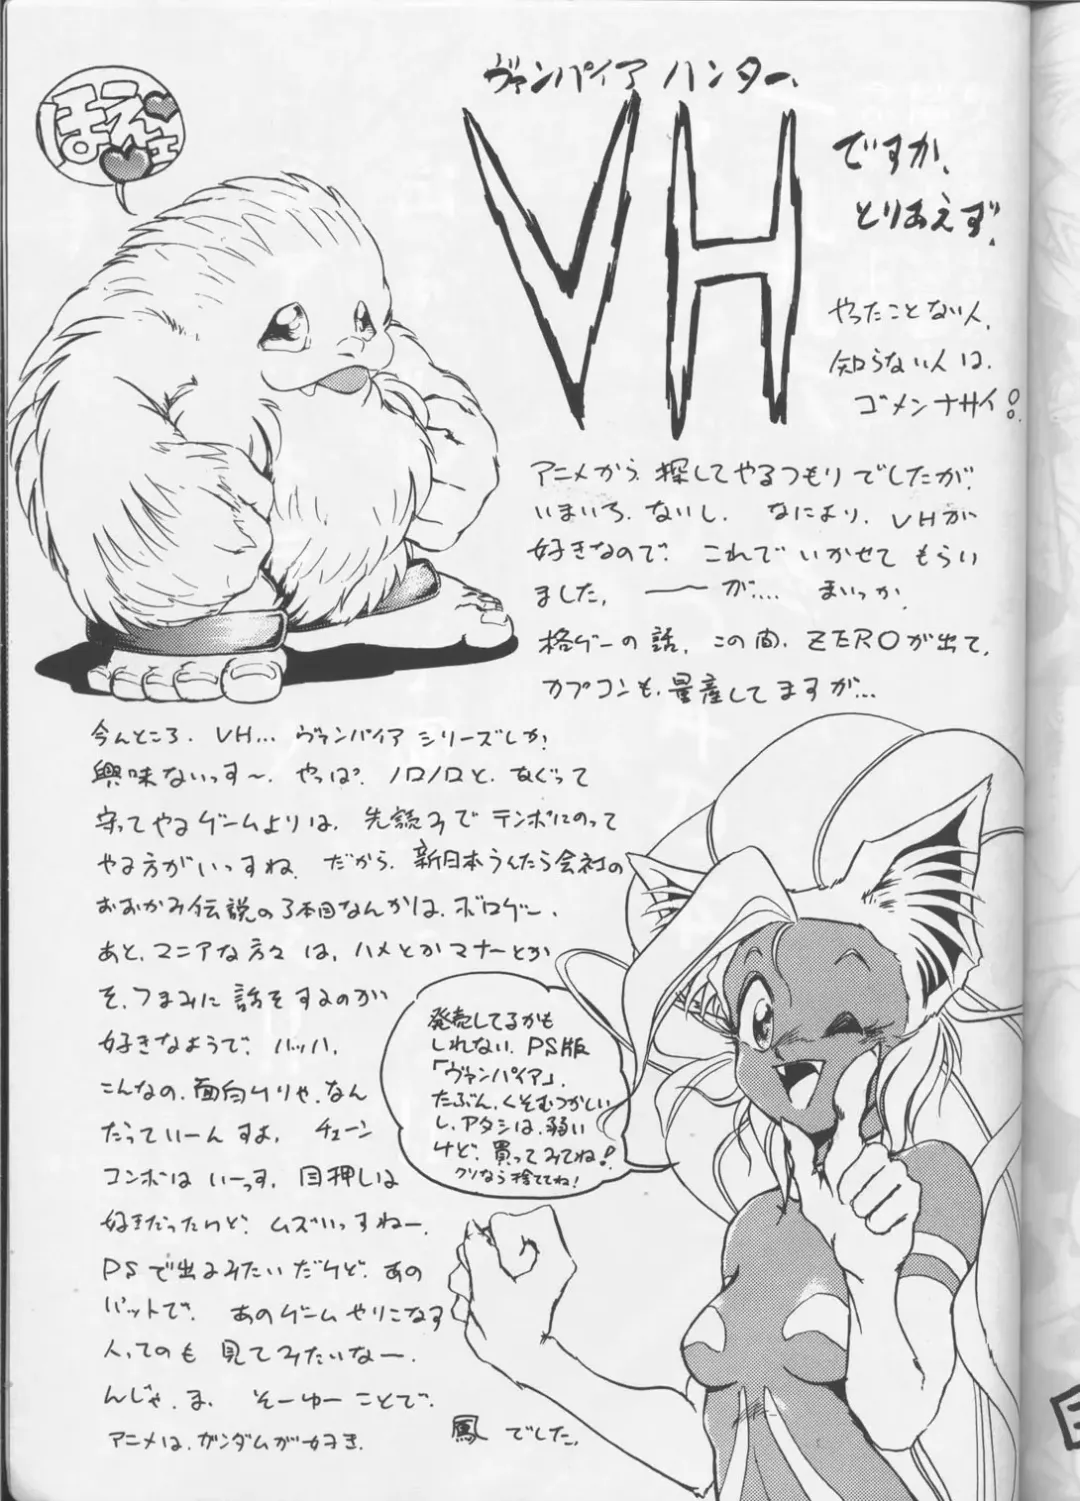 ほえェ
ヴァンパイア ハンター、
VH
ですか、
とりあえず、
やったことない人、
知らない人は、
ゴメンナサイ!
アニメから、探してやるつもりでしたが、
いまいち、ないし、なにより、VHが
好きなので、これでいかせてもらい
ました、――が.... まいっか、
格ゲーの話、この間、ZEROが出て、
カプコンも、量産してますが...
今んところ、VH... ヴァンパイアシリーズしか、
興味ないっす〜、やっぱ、ノロノロと、なぐって
守ってやるゲームよりは、先読みでテンポにのって
やる方がいっすね、だから、新日本うんたら会社の
おおかみ伝説の3本目なんかは、ボロゲー、
あと、マニアな方々は、ハメとかマナーとか
そ、つまみに話をするのが
好きなようで、ハッハ、
こんなの、面白けりゃ、なん
だっていーんすよ、チェーン
コンボはいーっす、目押しは
好きだったけど、ムズいっすねー、
PSで出るみたいだけど、あの
パットで、あのゲームやりこなす
人ってのも見てみたいなー、
んじゃ、ま、そーゆーことで、
アニメは、ガンダムが好き、
鳳でした、
発売してるかも
しれない、PS版
「ヴァンパイア」、
たぶん、くそむつかしい
し、アタシは、弱い
けど、買ってみてね!
クソなら捨ててね!